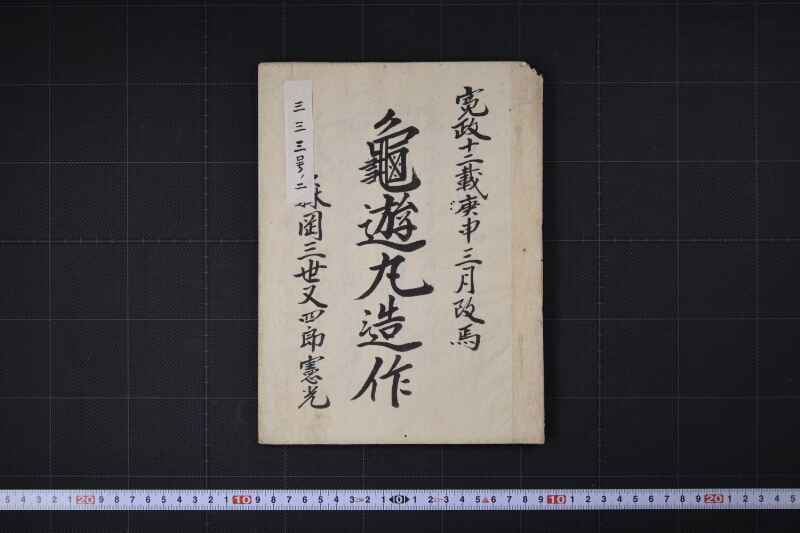 寛政十二載庚申三月改焉
龜遊丸造作
岡三世又四郎憲光
三三三号ノ二
5 4 3 2 1 20 9 8 7 6 5 4 3 2 1 10 9 8 7 6 5 4 3 2 1 0 1 2 3 4 5 6 7 8 9 10 1 2 3 4 5 6 7 8 9 20 1 2 3 4 5